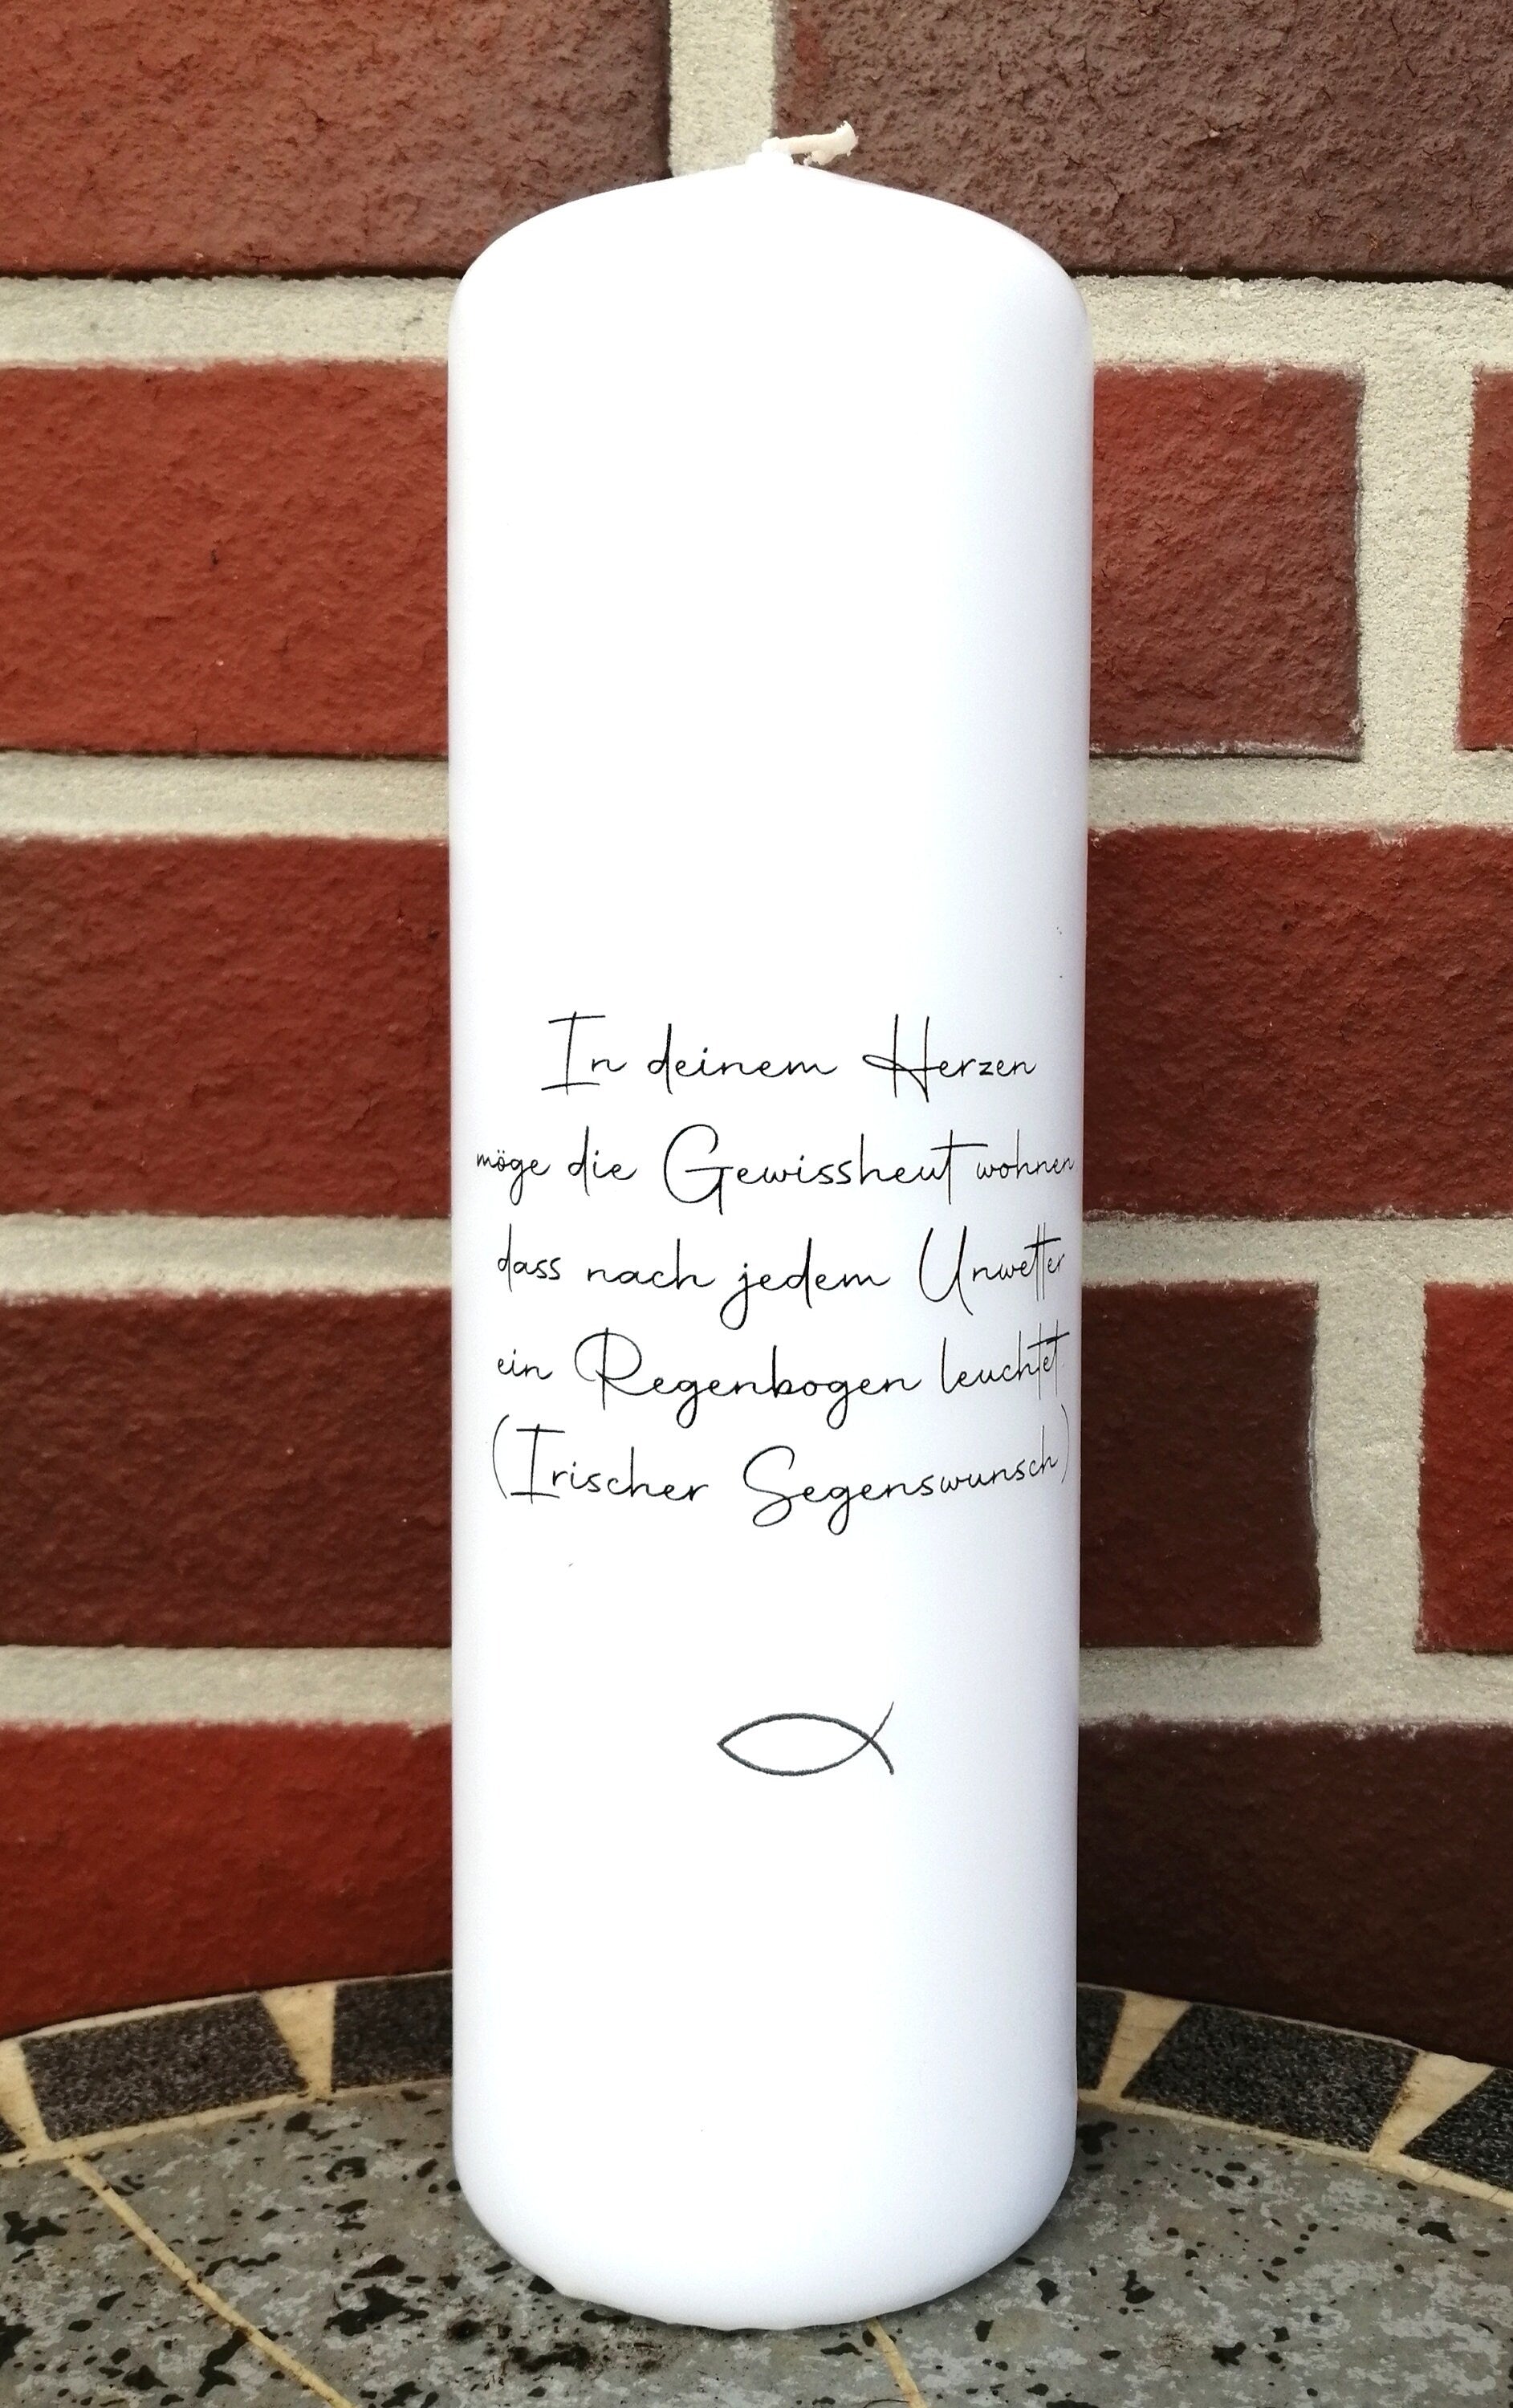 In deinem Herzen
möge die Gewissheut wohnen
dass nach jedem Unwetter
ein Regenbogen leuchtet.
(Irischer Segenswunsch)